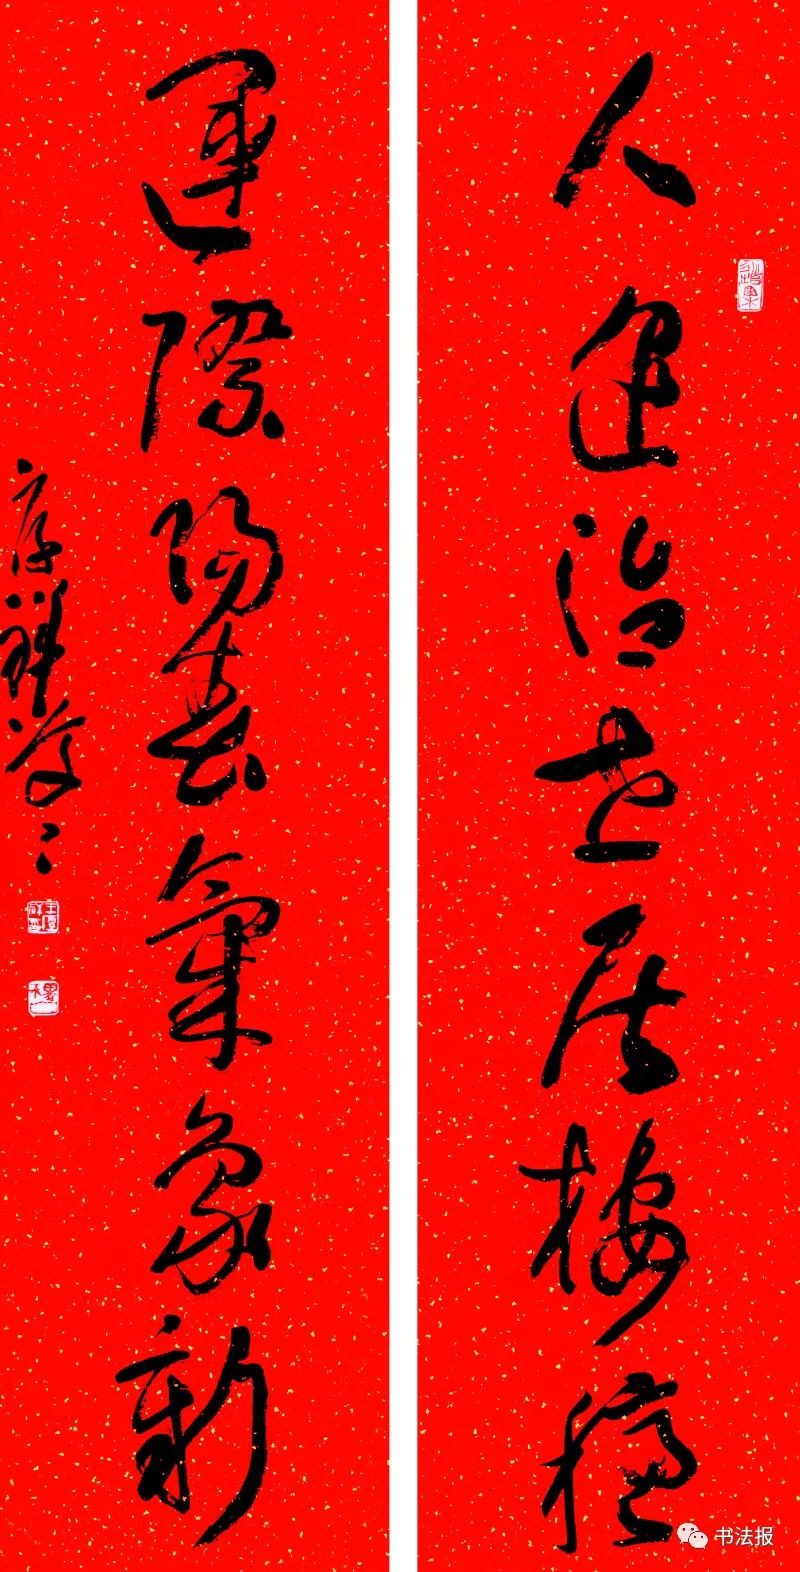 人逢治世居棲穩
運際陽春氣象新
厚祥
书法报